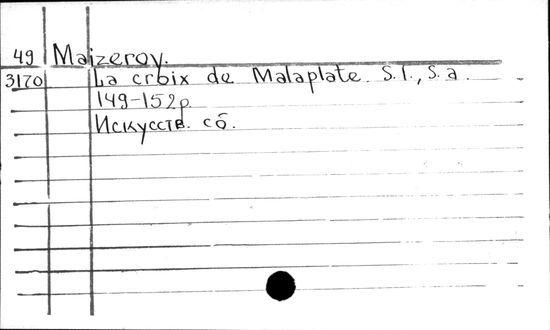 49 Maizeroy.
3170 La croix de Malaplate. S. l., s. a.
149-152 p
Искусств. сб.